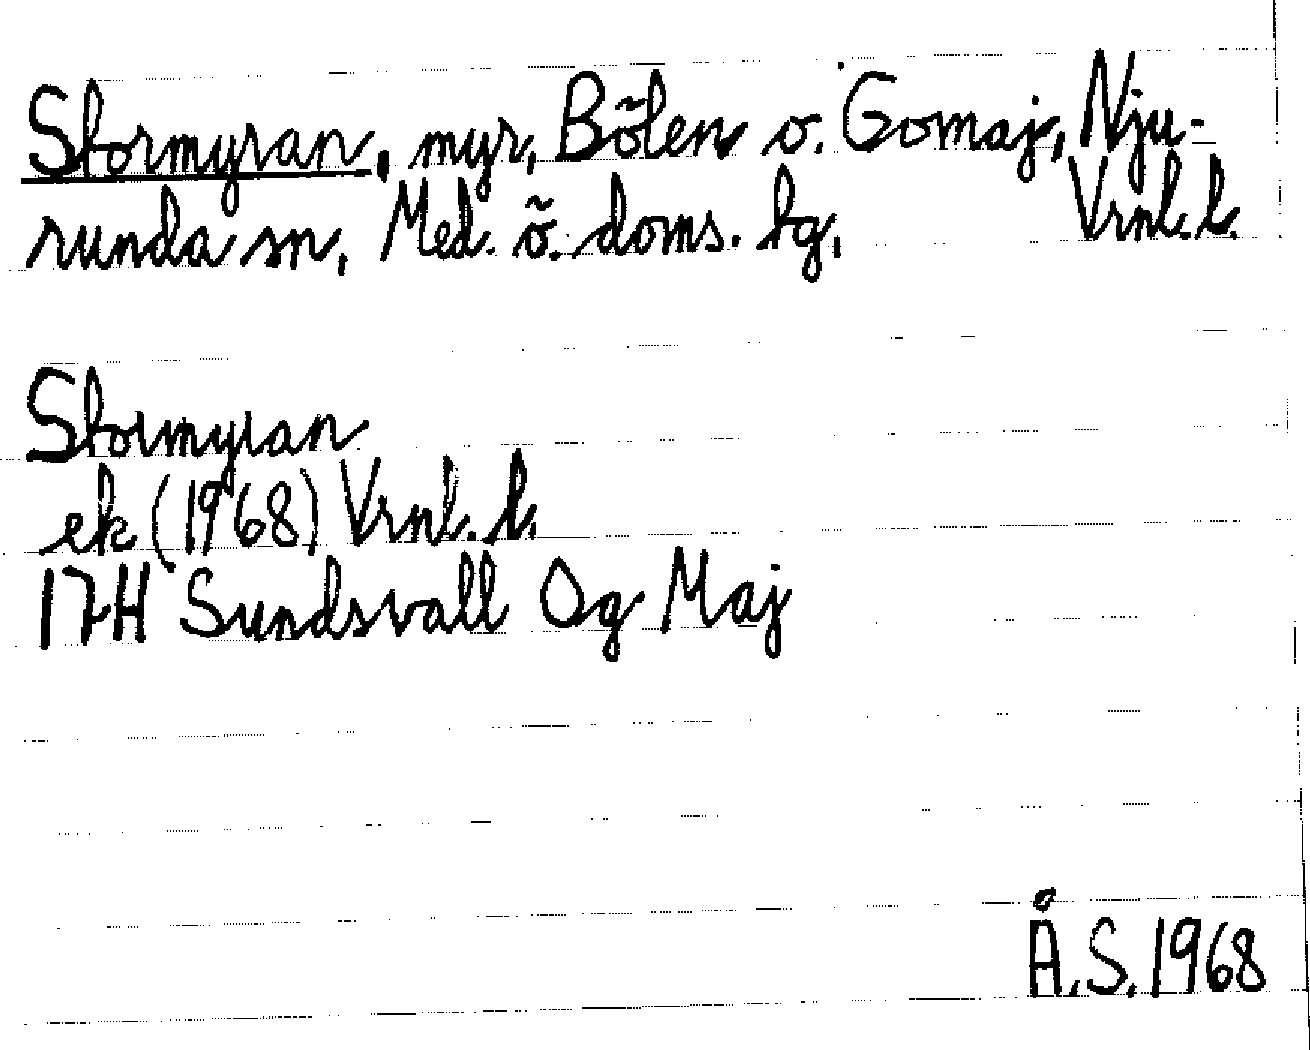 Stormyran, myr, Bölen o. Gomaj, Nju-
runda sn, Med. ö. doms. tg, Vrnl. l.
Stormyran
ek (1968) Vrnl. l.
17H Sundsvall Og Maj
Å.S. 1968